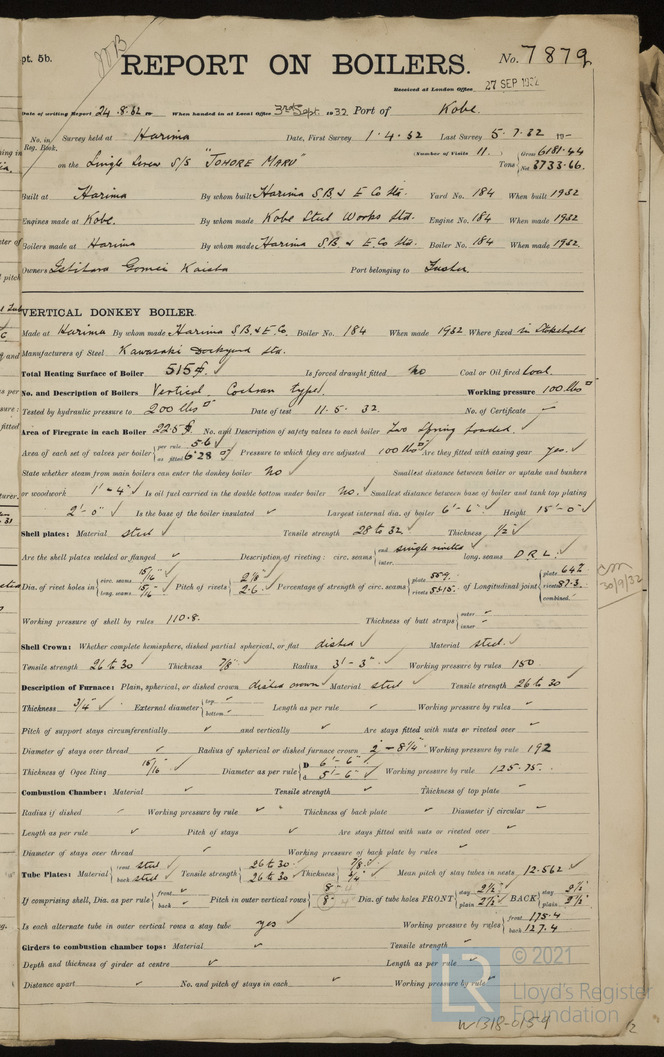 pt. 5b.
REPORT ON BOILERS.
No. 7879
Received at London Office 27 SEP 1932
Date of writing Report 24.8.32 When handed in at Local Office 3rd Sept. 1932 Port of Kobe.
No. in Reg. Book. Survey held at Harima Date, First Survey 1.4.32 Last Survey 5.7.32 19
(Number of Visits 11.
on the Single Screw S/S "JOHORE MARU" Tons { Gross 6181.44 Net 3733.66.
Built at Harima By whom built Harima S.B. & E Co Ltd. Yard No. 184 When built 1932
Engines made at Kobe. By whom made Kobe Steel Works Ltd. Engine No. 184 When made 1932
Boilers made at Harima By whom made Harima S.B. & E.Co Ltd. Boiler No. 184 When made 1932.
Owners Ishihara Gomei Kaisha Port belonging to
VERTICAL DONKEY BOILER.
Made at Harima By whom made Harima S.B. & E. Co. Boiler No. 184 When made 1932 Where fixed in Stokehold
Manufacturers of Steel Kawasaki Dockyard Ltd.
Total Heating Surface of Boiler 515 ft. Is forced draught fitted No Coal or Oil fired Coal.
No. and Description of Boilers Vertical Cochran type. Working pressure 100 lbs □"
Tested by hydraulic pressure to 200 lbs □" Date of test 11.5.32. No. of Certificate ✓
Area of Firegrate in each Boiler 22.5 ft No. and Description of safety valves to each boiler Two Spring loaded.
Area of each set of valves per boiler { per rule 5.6 as fitted 6.28 □" Pressure to which they are adjusted 100 lbs □" Are they fitted with easing gear yes.
State whether steam from main boilers can enter the donkey boiler No Smallest distance between boiler or uptake and bunkers
or woodwork 1'-4" Is oil fuel carried in the double bottom under boiler No. Smallest distance between base of boiler and tank top plating
2'-0" Is the base of the boiler insulated ✓ Largest internal dia. of boiler 6'-6" Height 15'-0"
Shell plates: Material steel Tensile strength 28 to 32. Thickness 1/2"
Are the shell plates welded or flanged ✓ Description of riveting: circ. seams { end single riveted inter. long. seams D.R.L.
Dia. of rivet holes in { circ. seams 15/16" long. seams 15/16" Pitch of rivets { 2 1/8" 2.6 Percentage of strength of circ. seams { plate 55.9. rivets of Longitudinal joint { plate 64% rivets 87.3. combined ✓
Working pressure of shell by rules 110.8. Thickness of butt straps { outer ✓ inner ✓
Shell Crown: Whether complete hemisphere, dished partial spherical, or flat dished Material steel.
Tensile strength 26 to 30 Thickness 7/8" Radius 3'-3" Working pressure by rules 150
Description of Furnace: Plain, spherical, or dished crown dished crown Material steel Tensile strength 26 to 30
Thickness 3/4" External diameter { top ✓ bottom ✓ Length as per rule ✓ Working pressure by rules ✓
Pitch of support stays circumferentially ✓ and vertically ✓ Are stays fitted with nuts or riveted over ✓
Diameter of stays over thread ✓ Radius of spherical or dished furnace crown 2'-8 1/4" Working pressure by rule 192
Thickness of Ogee Ring 15/16 Diameter as per rule { D 6'-6" d 5'-6" Working pressure by rule 125.75.
Combustion Chamber: Material ✓ Tensile strength ✓ Thickness of top plate ✓
Radius if dished ✓ Working pressure by rule ✓ Thickness of back plate ✓ Diameter if circular ✓
Length as per rule ✓ Pitch of stays ✓ Are stays fitted with nuts or riveted over ✓
Diameter of stays over thread ✓ Working pressure of back plate by rules ✓
Tube Plates: Material { front steel back steel Tensile strength { 26 to 30. 26 to 30. Thickness { 7/8" 3/4" Mean pitch of stay tubes in nests 12.562
If comprising shell, Dia. as per rule { front ✓ back ✓ Pitch in outer vertical rows { 8" 8" Dia. of tube holes FRONT { stay 2 1/2" plain 2 1/2" BACK { stay 2 1/2" plain 2 1/2"
Is each alternate tube in outer vertical rows a stay tube yes Working pressure by rules { front 175.4 back 127.4
Girders to combustion chamber tops: Material ✓ Tensile strength ✓
Depth and thickness of girder at centre ✓ Length as per rule ✓
Distance apart ✓ No. and pitch of stays in each ✓ Working pressure by rule ✓
30/9/32
LR © 2021
Lloyd's Register
Foundation
W1318-0154